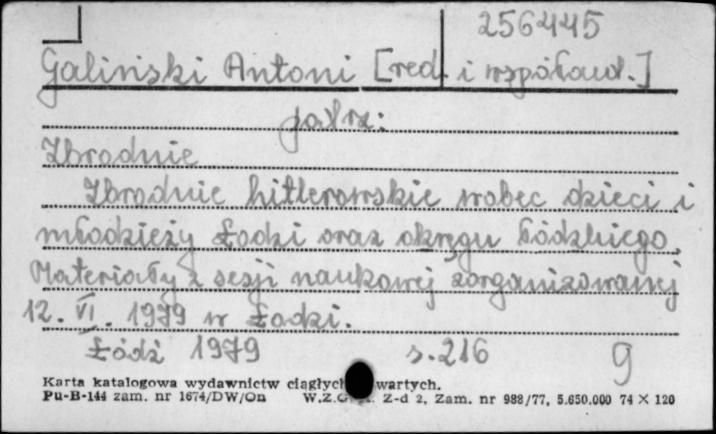 256445
Galiński Antoni [red. i współaut.]
patrz:
Zbrodnie
Zbrodnie hitlerowskie wobec dzieci i
młodzieży Łodzi oraz okręgu łódzkiego.
Materiały z sesji naukowej zorganizowanej
12. VI. 1979 w Łodzi.
Łódź 1979 s. 216 9
Karta katalogowa wydawnictw ciągłych wartych.
Pu-B-144 zam. nr 1674/DW/On W.Z.G. Z-d 2, Zam. nr 988/77, 5.650.000 74 X 120